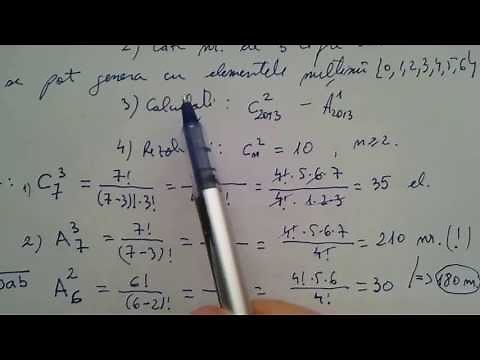 2) Câte nr. de 3 cifre
se pot genera cu elementele mulțimii {0,1,2,3,4,5,6}
3) Calculați: C²₂₀₁₃ − A¹₂₀₁₃
4) : Cₙ² = 10, n≥2.
: 1) C₇³ = 7!/((7-3)!·3!) = — = 4!·5·6·7/(4!·1·2·3) = 35 el.
2) A₇³ = 7!/(7-3)! = — = 4!·5·6·7/4! = 210 nr.(!)
0ab A₆² = 6!/(6-2)! = — = 4!·5·6/4! = 30 /⇒ 180 nr.